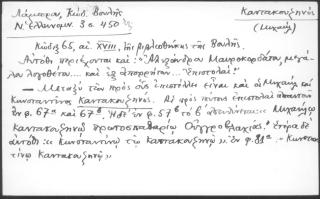 Λάμπρου, Κώδ. Βουλῆς
Ν. Ἑλληνομν. 3 σ. 450
Καντακουζηνὸς
(Μιχαὴλ)
Κώδιξ 65, αἰ. XVIII, τῆς βιβλιοθήκης τῆς Βουλῆς.
Αὐτόθι περιέχονται καὶ: "Ἀλεξάνδρου Μαυροκορδάτου, μεγά-
λου λογοθέτου.... καὶ ἐξ ἀπορρήτων... Ἐπιστολαί"
— Μεταξὺ τῶν πρὸς οὓς ἐπιστέλλει εἶναι καὶ οἱ Μιχαὴλ καὶ
Κωνσταντῖνος Καντακουζηνός. Αἱ πρὸς τούτους ἐπιστολαὶ ἀπαντοῦν
ἐν φ. 67α καὶ 67β. Ἡ δὲ ἐν φ. 57 τὸ β΄ : Μιχαήλῳ
Καντακουζηνῷ πρωτοσπαθαρίῳ Οὐγγροβλαχίας. Ἑτέρα δὲ
αὐτόθι: « Κωνσταντίνῳ τῷ Καντακουζηνῷ », ἐν φ. 81α « Κωνσταν-
τίνῳ Καντακουζηνῷ »